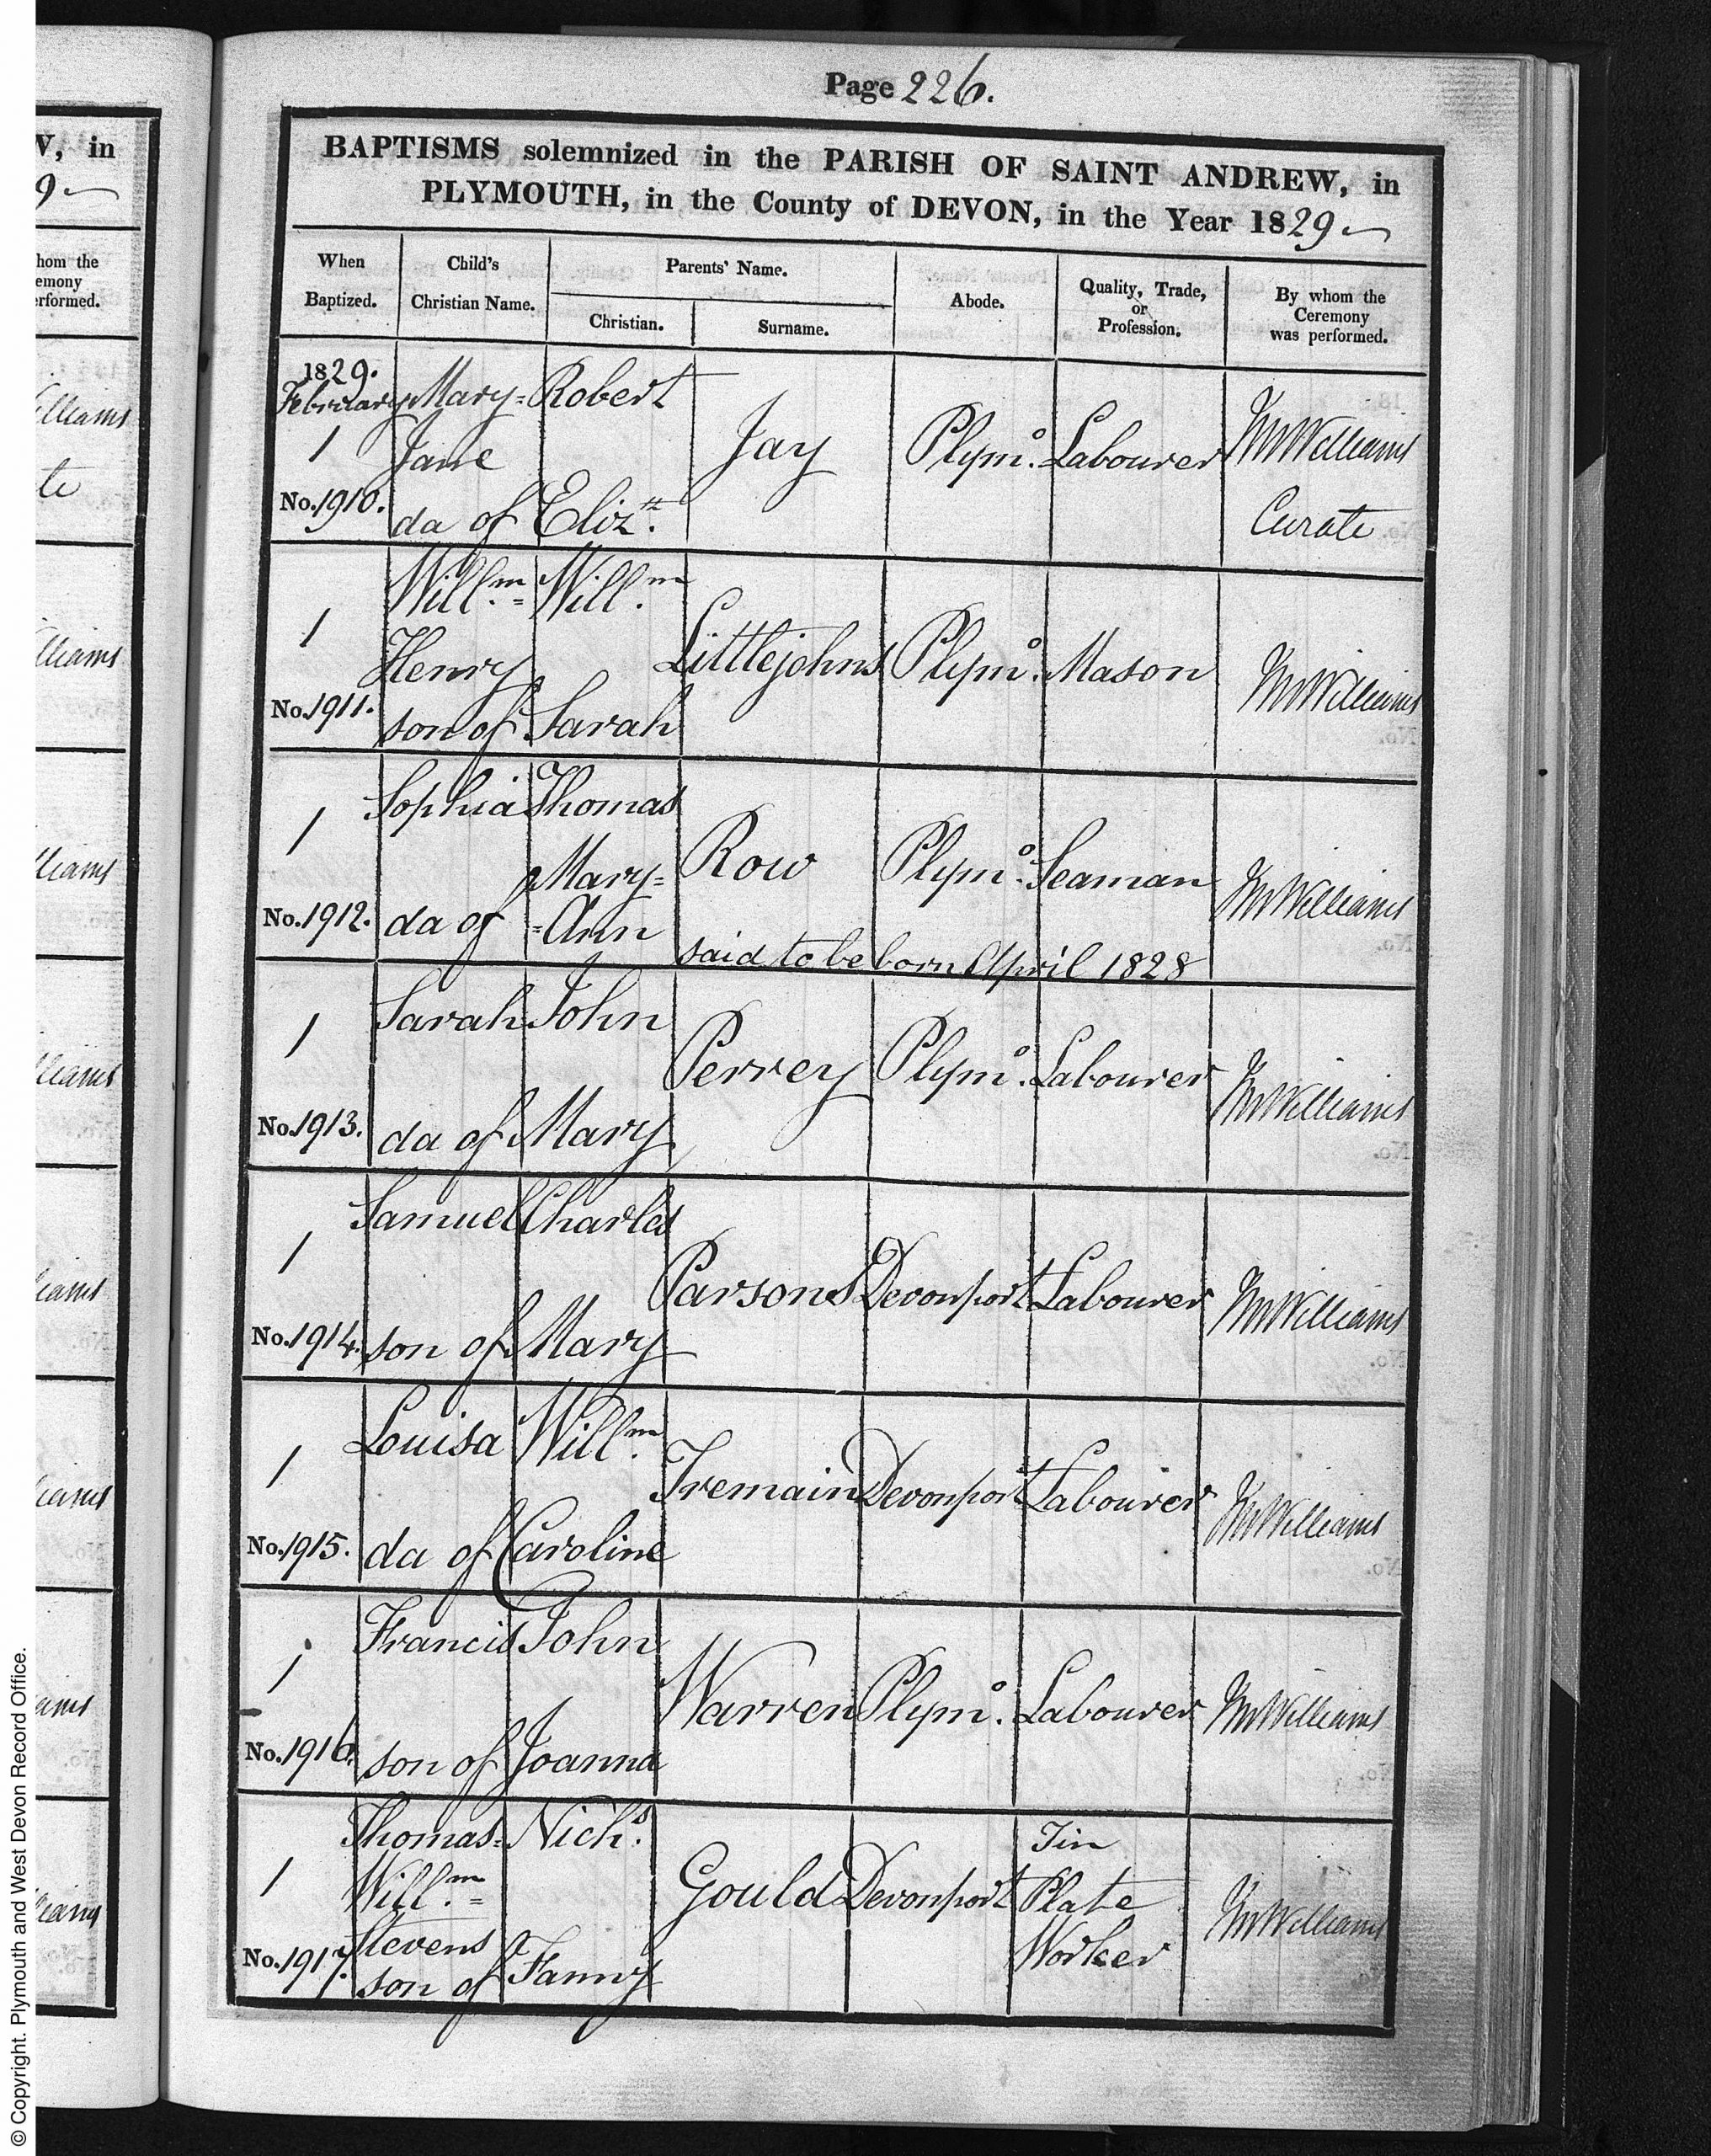 Page 226.
BAPTISMS solemnized in the PARISH OF SAINT ANDREW, in
PLYMOUTH, in the County of DEVON, in the Year 1829
When Baptized.
Child's Christian Name.
Parents' Name.
Christian.
Surname.
Abode.
Quality, Trade, or Profession.
By whom the Ceremony was performed.
1829.
February
1
No. 1910.
Mary=
Jane
da of
Robert
Elizth.
Jay
Plymo.
Labourer
Williams
Curate
1
No. 1911.
Willm.=
Henry
son of
Willm.
Sarah
Littlejohns
Plymo.
Mason
Williams
1
No. 1912.
Sophia
da of
Thomas
Mary=
=Ann
Row
Plymo.
Seaman
Williams
said to be born April 1828
1
No. 1913.
Sarah
da of
John
Mary
Perrey
Plymo.
Labourer
Williams
1
No. 1914.
Samuel
son of
Charles
Mary
Parsons
Devonport
Labourer
Williams
1
No. 1915.
Louisa
da of
Willm.
Caroline
Tremain
Devonport
Labourer
Williams
1
No. 1916.
Francis
son of
John
Joanna
Warren
Plymo.
Labourer
Williams
1
No. 1917.
Thomas=
Willm.=
Stevens
son of
Nichs.
Fanny
Gould
Devonport
Tin
Plate
Worker
Williams
© Copyright. Plymouth and West Devon Record Office.